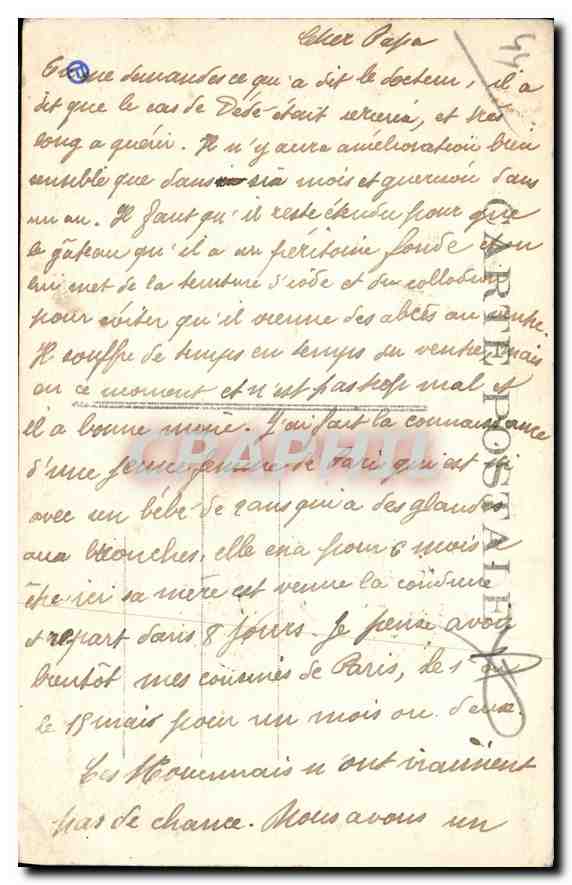 Cher Papa
44
Tu me demandes ce qu'a dit le docteur, il a
dit que le cas de Dédé était sérieux, et très
long a guérir. Il n'y aura amélioration bien
sensible que dans six mois et guérison dans
un an. Il faut qu'il reste étendu pour que
le gâteau qu'il a au péritoine fonde et on
lui met de la teinture d'iode et du collodion
pour éviter qu'il vienne des abcès au ventre.
Il souffre de temps en temps du ventre mais
en ce moment et n'est pas trop mal et
il a bonne mine. J'ai fait la connaissance
d'une jeune femme de Paris qui est ici
avec un bébé de 2 ans qui a des glandes
aux bronches, elle en a pour 6 mois a
être ici sa mère est venue la conduire
et repart dans 8 jours. Je pense avoir
bientôt mes cousines de Paris, le 1 ou
le 15 mai pour un mois ou deux.
Les n'ont vraiment
pas de chance. Nous avons un
CARTE POSTALE
CPAPHIL